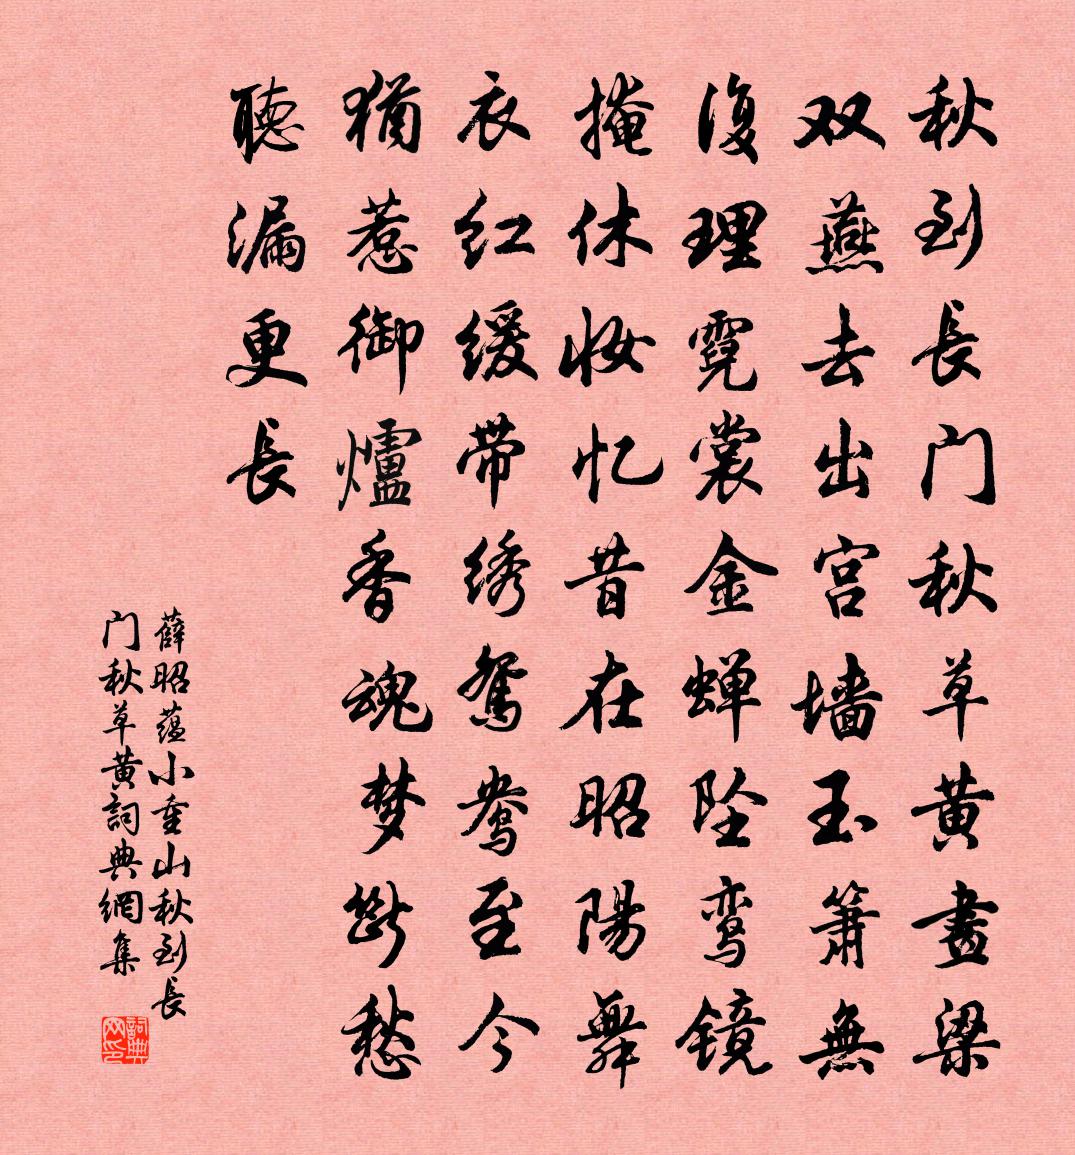 秋到長门秋草黄畫梁
双燕去出宫墙玉箫無
復理霓裳金蝉坠鸾镜
掩休妆忆昔在昭陽舞
衣红缓带绣鸳鸯至今
猶惹御爐香魂梦断愁
聴漏更長
薛昭蕴小重山秋到長
门秋草黄詞典網集
詞典网印